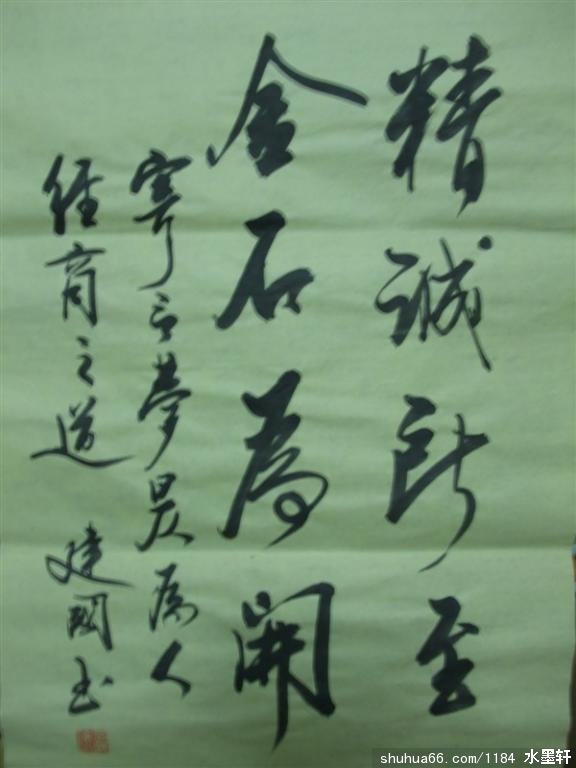 精誠所至
金石為開
寄言夢晨為人
经商之道 建國书
shuhua66.com/1184 水墨轩